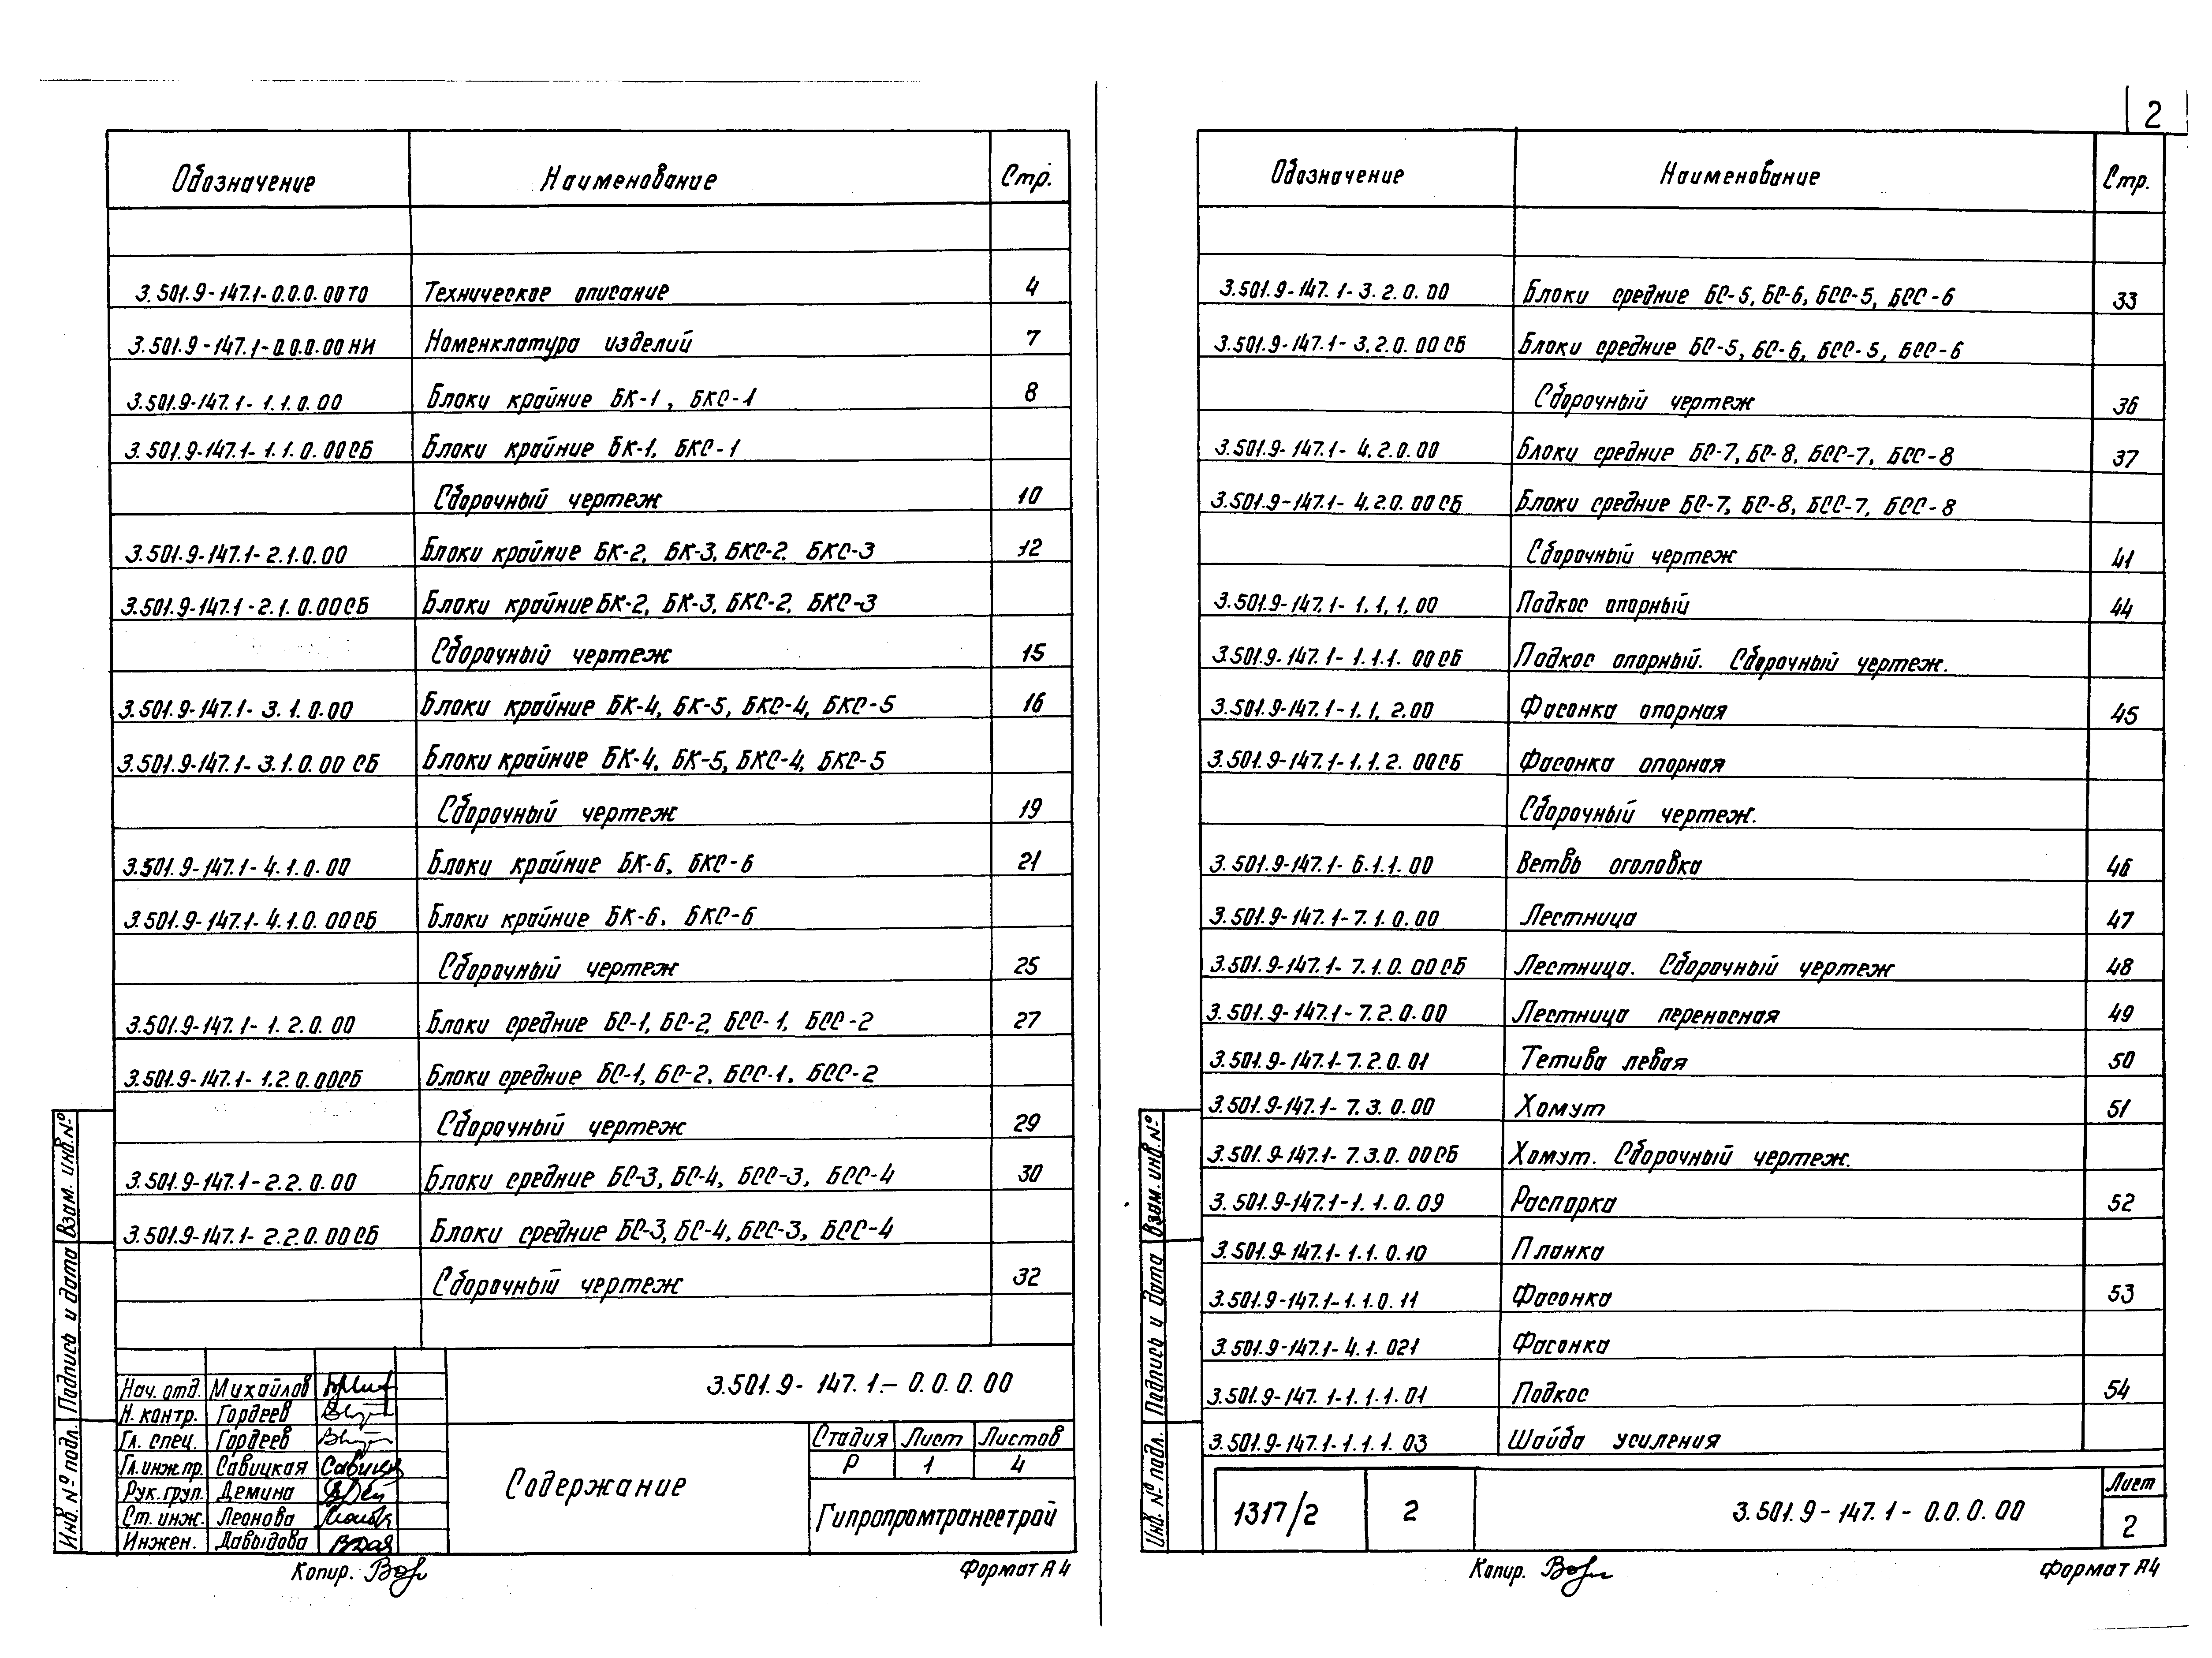 Обозначение Наименование Стр.
3.501.9-147.1-0.0.0.00ТО Техническое описание 4
3.501.9-147.1-0.0.0.00НИ Номенклатура изделий 7
3.501.9-147.1-1.1.0.00 Блоки крайние БК-1, БКС-1 8
3.501.9-147.1-1.1.0.00СБ Блоки крайние БК-1, БКС-1
Сборочный чертеж 10
3.501.9-147.1-2.1.0.00 Блоки крайние БК-2, БК-3, БКС-2 БКС-3 12
3.501.9-147.1-2.1.0.00СБ Блоки крайние БК-2, БК-3, БКС-2, БКС-3
Сборочный чертеж 15
3.501.9-147.1-3.1.0.00 Блоки крайние БК-4, БК-5, БКС-4, БКС-5 16
3.501.9-147.1-3.1.0.00 СБ Блоки крайние БК-4, БК-5, БКС-4, БКС-5
Сборочный чертеж 19
3.501.9-147.1-4.1.0.00 Блоки крайние БК-6, БКС-6 21
3.501.9-147.1-4.1.0.00СБ Блоки крайние БК-6, БКС-6
Сборочный чертеж 25
3.501.9-147.1-1.2.0.00 Блоки средние БС-1, БС-2, БСС-1, БСС-2 27
3.501.9-147.1-1.2.0.00СБ Блоки средние БС-1, БС-2, БСС-1, БСС-2
Сборочный чертеж 29
3.501.9-147.1-2.2.0.00 Блоки средние БС-3, БС-4, БСС-3, БСС-4 30
3.501.9-147.1-2.2.0.00СБ Блоки средние БС-3, БС-4, БСС-3, БСС-4
Сборочный чертеж 32
Взам. инв. №
Подпись и дата
Инв. № подл.
3.501.9-147.1-0.0.0.00
Нач. отд. Михайлов
Н. контр. Гордеев
Гл. спец. Гордеев
Гл. инж. пр. Савицкая
Рук. груп. Демина
Ст. инж. Леонова
Инжен. Давыдова
Содержание
Стадия Лист Листов
Р 1 4
Гипропромтрансстрой
Копир. Формат А4
2
Обозначение Наименование Стр.
3.501.9-147.1-3.2.0.00 Блоки средние БС-5, БС-6, БСС-5, БСС-6 33
3.501.9-147.1-3.2.0.00СБ Блоки средние БС-5, БС-6, БСС-5, БСС-6
Сборочный чертеж 36
3.501.9-147.1-4.2.0.00 Блоки средние БС-7, БС-8, БСС-7, БСС-8 37
3.501.9-147.1-4.2.0.00СБ Блоки средние БС-7, БС-8, БСС-7, БСС-8
Сборочный чертеж 41
3.501.9-147.1-1.1.1.00 Подкос опорный 44
3.501.9-147.1-1.1.1.00СБ Подкос опорный. Сборочный чертеж.
3.501.9-147.1-1.1.2.00 Фасонка опорная 45
3.501.9-147.1-1.1.2.00СБ Фасонка опорная
Сборочный чертеж.
3.501.9-147.1-6.1.1.00 Ветвь оголовка 46
3.501.9-147.1-7.1.0.00 Лестница 47
3.501.9-147.1-7.1.0.00СБ Лестница. Сборочный чертеж 48
3.501.9-147.1-7.2.0.00 Лестница переносная 49
3.501.9-147.1-7.2.0.01 Тетива левая 50
3.501.9-147.1-7.3.0.00 Хомут 51
3.501.9-147.1-7.3.0.00СБ Хомут. Сборочный чертеж.
3.501.9-147.1-1.1.0.09 Распорка 52
3.501.9-147.1-1.1.0.10 Планка
3.501.9-147.1-1.1.0.11 Фасонка 53
3.501.9-147.1-4.1.021 Фасонка
3.501.9-147.1-1.1.1.01 Подкос 54
3.501.9-147.1-1.1.1.03 Шайба усиления
Взам. инв. №
Подпись и дата
Инв. № подл.
1317/2 2 3.501.9-147.1-0.0.0.00 Лист
2
Копир. Формат А4